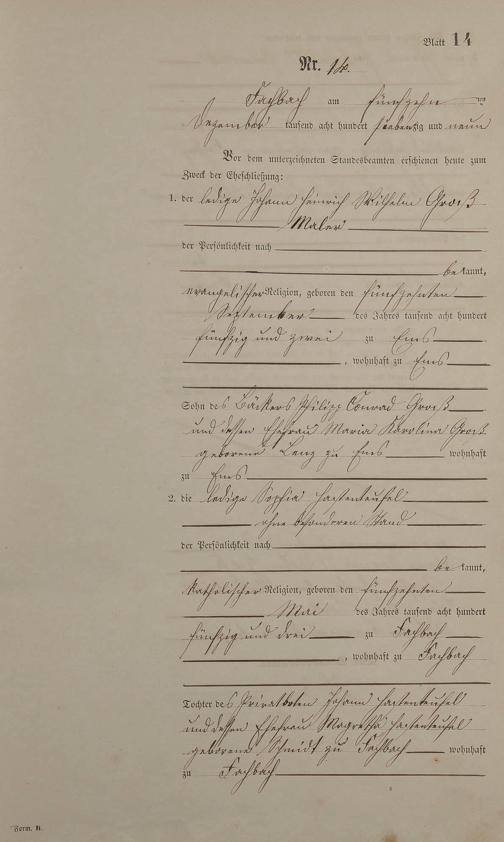 Blatt 14
Nr. 14.
Fachbach am fünfzehn ten
Dezember tausend acht hundert siebenzig und neun
Vor dem unterzeichneten Standesbeamten erschienen heute zum
Zweck der Eheschließung:
1. der ledige Johann Heinrich Wilhelm Groß
Maler
der Persönlichkeit nach
bekannt,
evangelischer Religion, geboren den fünfzehnten
September des Jahres tausend acht hundert
fünfzig und zwei zu Ems
, wohnhaft zu Ems
Sohn des Bäckers Philipp Conrad Groß
und dessen Ehefrau Maria Karolina Groß
geborene Lenz zu Ems wohnhaft
zu Ems
2. die ledige Sophia Hartenteufel
ohne besonderen Stand
der Persönlichkeit nach
bekannt,
katholischer Religion, geboren den fünfzehnten
Mai des Jahres tausend acht hundert
fünfzig und drei zu Fachbach
, wohnhaft zu Fachbach
Tochter des Privatboten Johann Hartenteufel
und dessen Ehefrau Magretha Hartenteufel
geborene Schmidt zu Fachbach wohnhaft
zu Fachbach
Form. B.